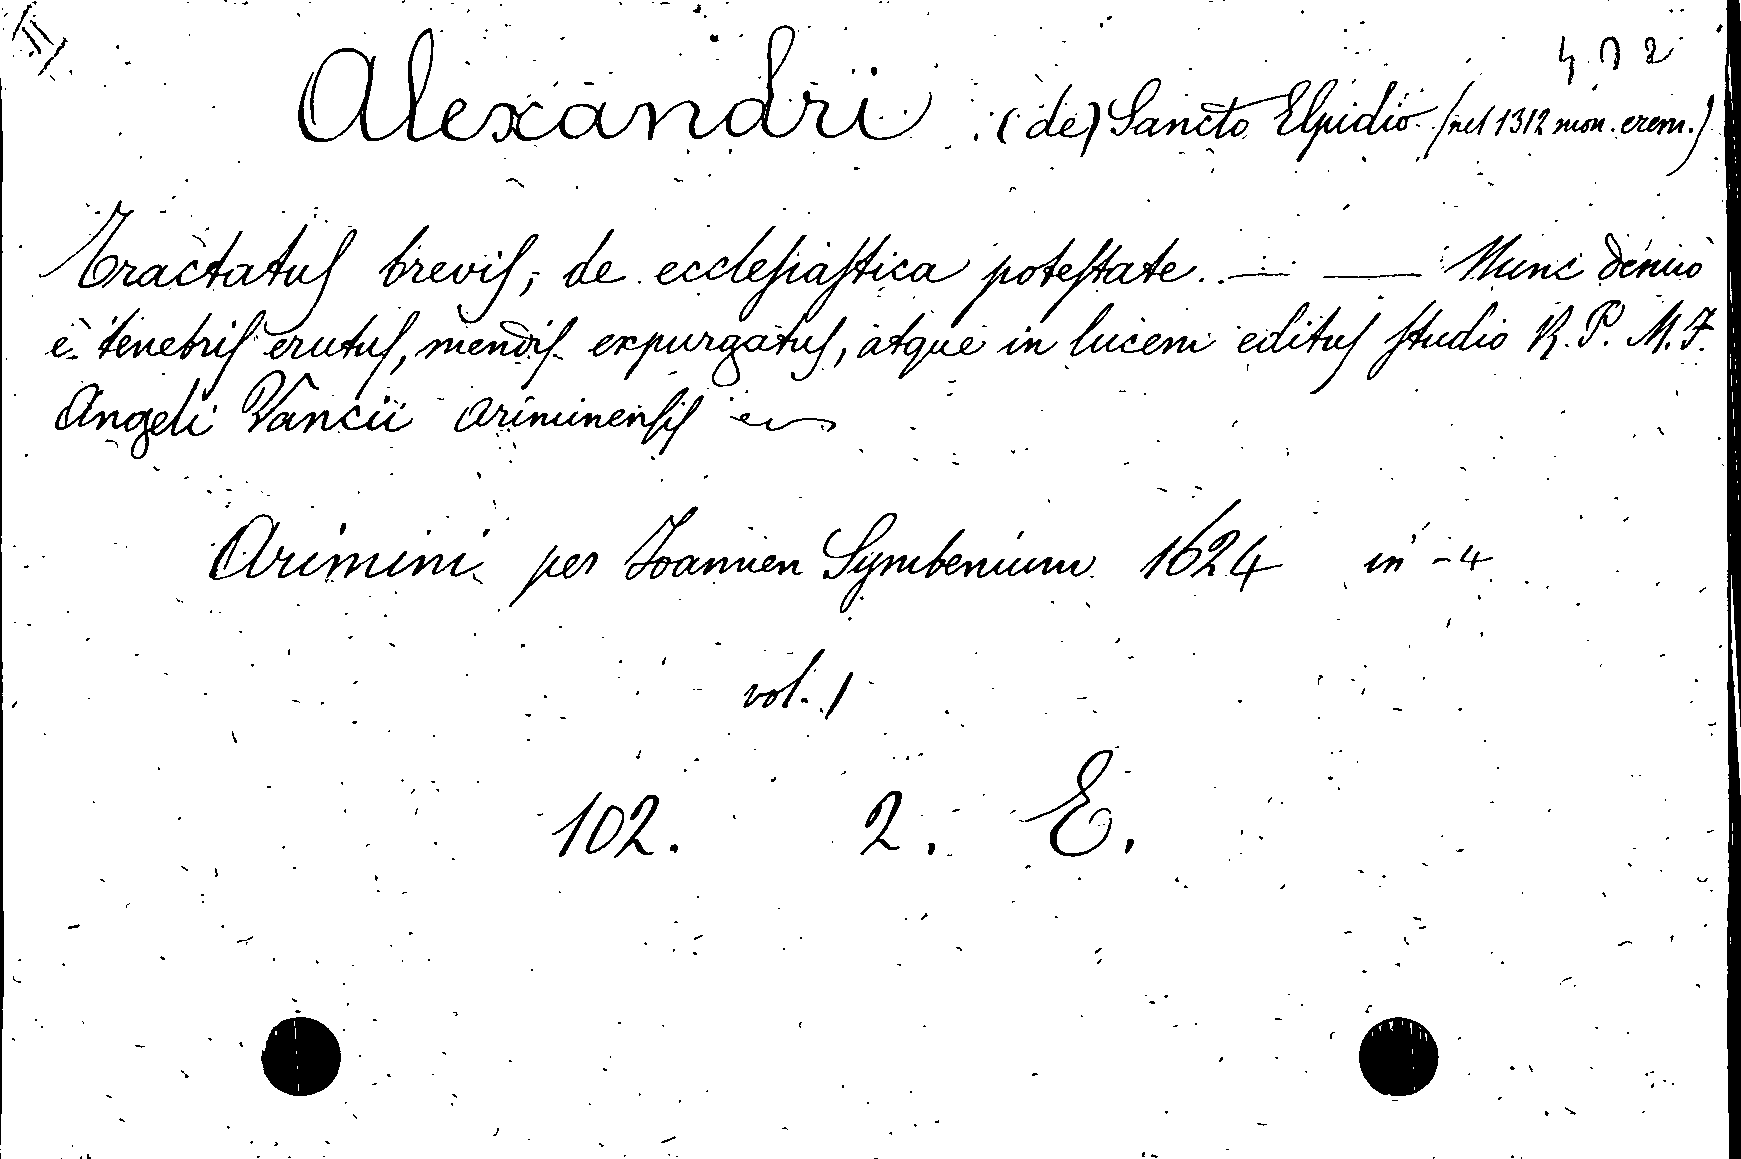 4 0 2
Alexandri (de) Sancto Elpidio (nel 1312 mon. erem.)
Tractatus brevis, de ecclesiastica potestate. — — Nunc denuò
è tenebris erutus, mendis expurgatus, atque in lucem editus studio R. P. M. F.
Angeli Vancii Ariminensis
Arimini per Ioannen Symbenium 1624 in -4
vol. 1
102. 2. E.